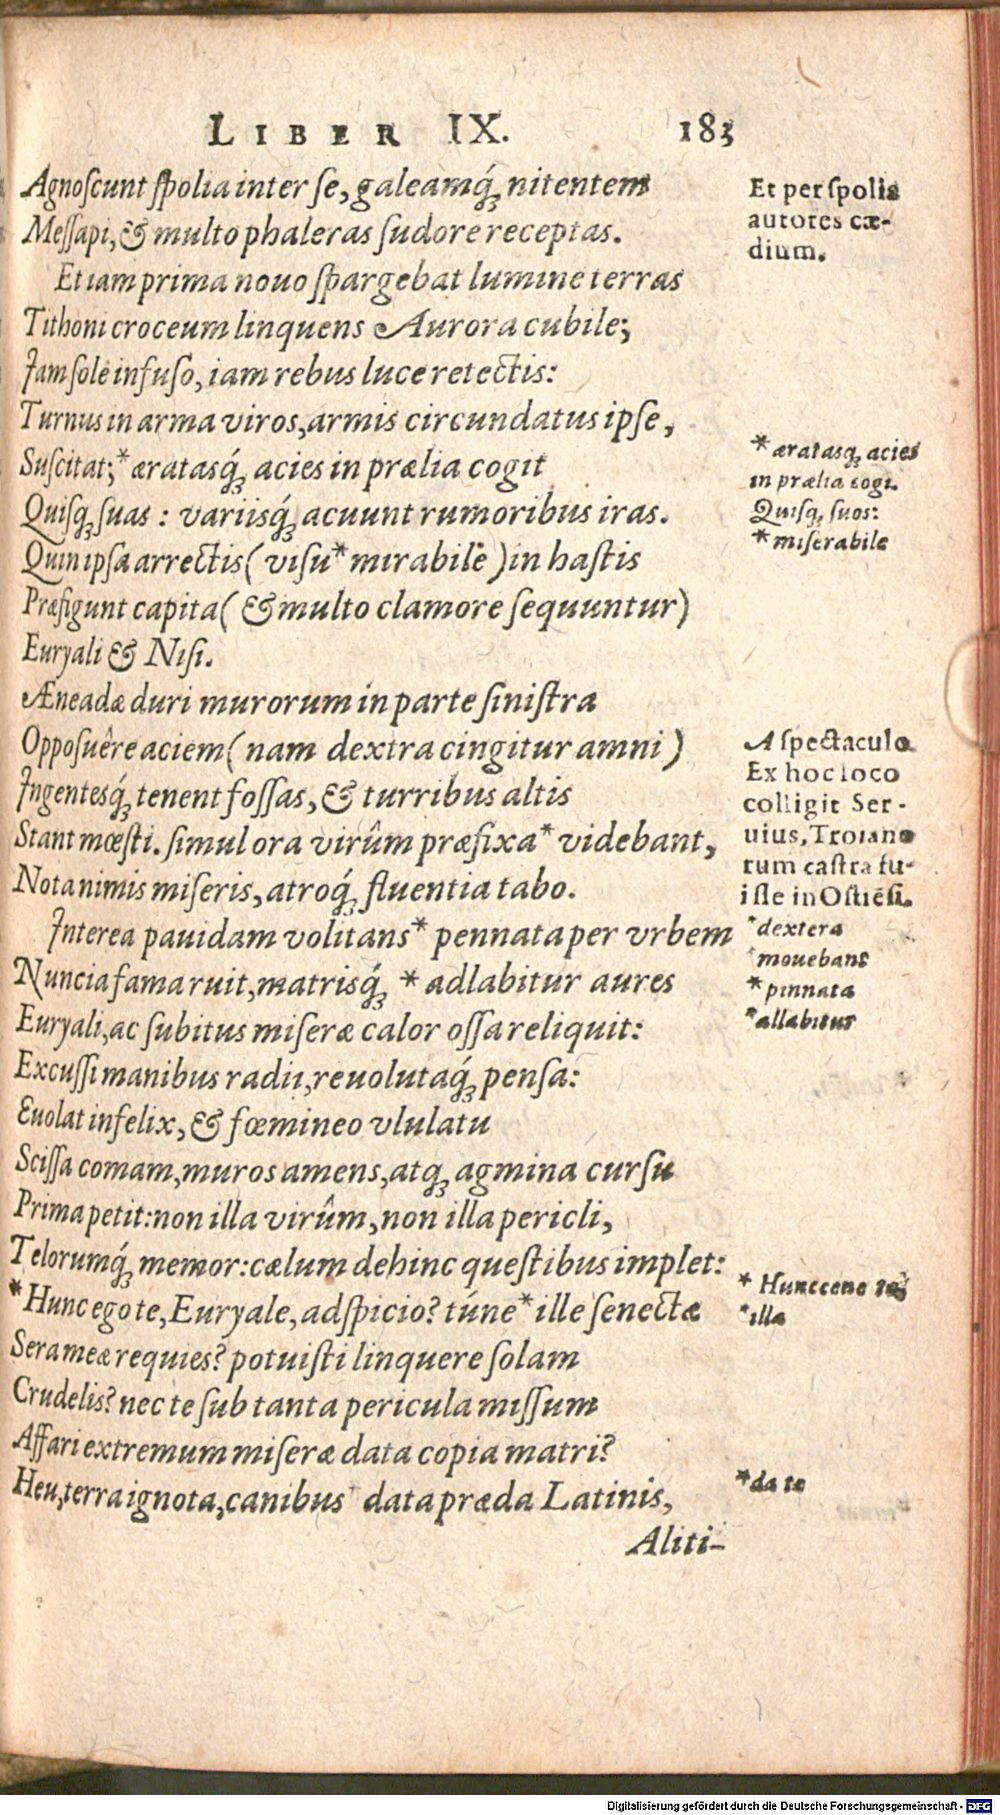 LIBER IX. 183
Agnoſcunt ſpolia inter ſe, galeamq́ꝫ nitentem
Meſſapi, & multo phaleras ſudore receptas.
Et iam prima nouo ſpargebat lumine terras
Tithoni croceum linquens Aurora cubile;
Iam ſole infuſo, iam rebus luce retectis:
Turnus in arma viros, armis circundatus ipſe,
Suſcitat; *æratasq́ꝫ acies in prælia cogit
Quiſqꝫ ſuas : variisq́ꝫ acuunt rumoribus iras.
Quin ipſa arrectis ( viſu * mirabile ) in haſtis
Præfigunt capita ( & multo clamore ſequuntur)
Euryali & Niſi.
Æneadæ duri murorum in parte ſiniſtra
Oppoſuêre aciem ( nam dextra cingitur amni )
Ingentesq́ꝫ tenent foſſas, & turribus altis
Stant mœſti. ſimul ora virûm præfixa * videbant,
Nota nimis miſeris, atroq́ꝫ fluentia tabo.
Interea pauidam volitans * pennata per vrbem
Nuncia fama ruit, matrisq́ꝫ * adlabitur aures
Euryali, ac ſubitus miſeræ calor oſſa reliquit:
Excuſſi manibus radii, reuolutaq́ꝫ penſa:
Euolat infelix, & fœmineo vlulatu
Sciſſa comam, muros amens, atqꝫ agmina curſu
Prima petit: non illa virûm, non illa pericli,
Telorumq́ꝫ memor: cælum dehinc queſtibus implet:
*Hunc ego te, Euryale, adſpicio? túne * ille ſenectæ
Sera meæ requies? potuiſti linquere ſolam
Crudelis? nec te ſub tanta pericula miſſum
Affari extremum miſeræ data copia matri?
Heu, terra ignota, canibus * data præda Latinis,
Aliti-
Et per ſpolia
autores cæ-
dium.
* æratasqꝫ acies
in prælia cogi.
Quiſqꝫ ſuos:
* miſerabile
A ſpectaculo
Ex hoc loco
colligit Ser-
uius, Troiano
rum caſtra fu-
iſſe in Oſtiēſi.
*dextera
mouebant
* pinnata
*allabitur
* Hunccene
*illa
*da te
Digitalisierung gefördert durch die Deutsche Forschungsgemeinschaft - DFG